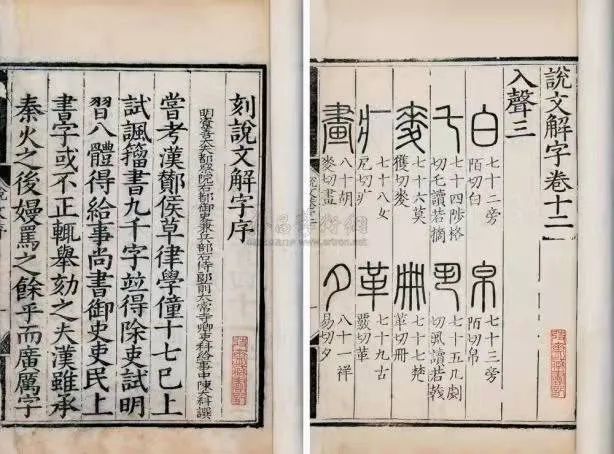 刻說文解字序
明資善大夫都察院右都御史兼兵部右侍郎前太常寺卿吏科給事中陳大科譔
嘗考漢酇侯草律學僮十七巳上
試諷籀書九千字竝得除吏試明
習八體得給事尚書御史吏民上
書字或不正輒舉劾之夫漢雖承
秦火之後嫚罵之餘乎而廣厲字
說文解字卷十二
入聲三
白
七十二旁
陌切白
帛
七十三旁
陌切帛
乇
七十四陟格
切乇讀若摘
丮
七十五几劇
切丮讀若戟
麥
七十六莫
獲切麥
冊
七十七楚
革切冊
疒
七十八女
尼切疒
革
七十九古
覈切革
畫
八十胡
麥切畫
夕
八十一祥
易切夕